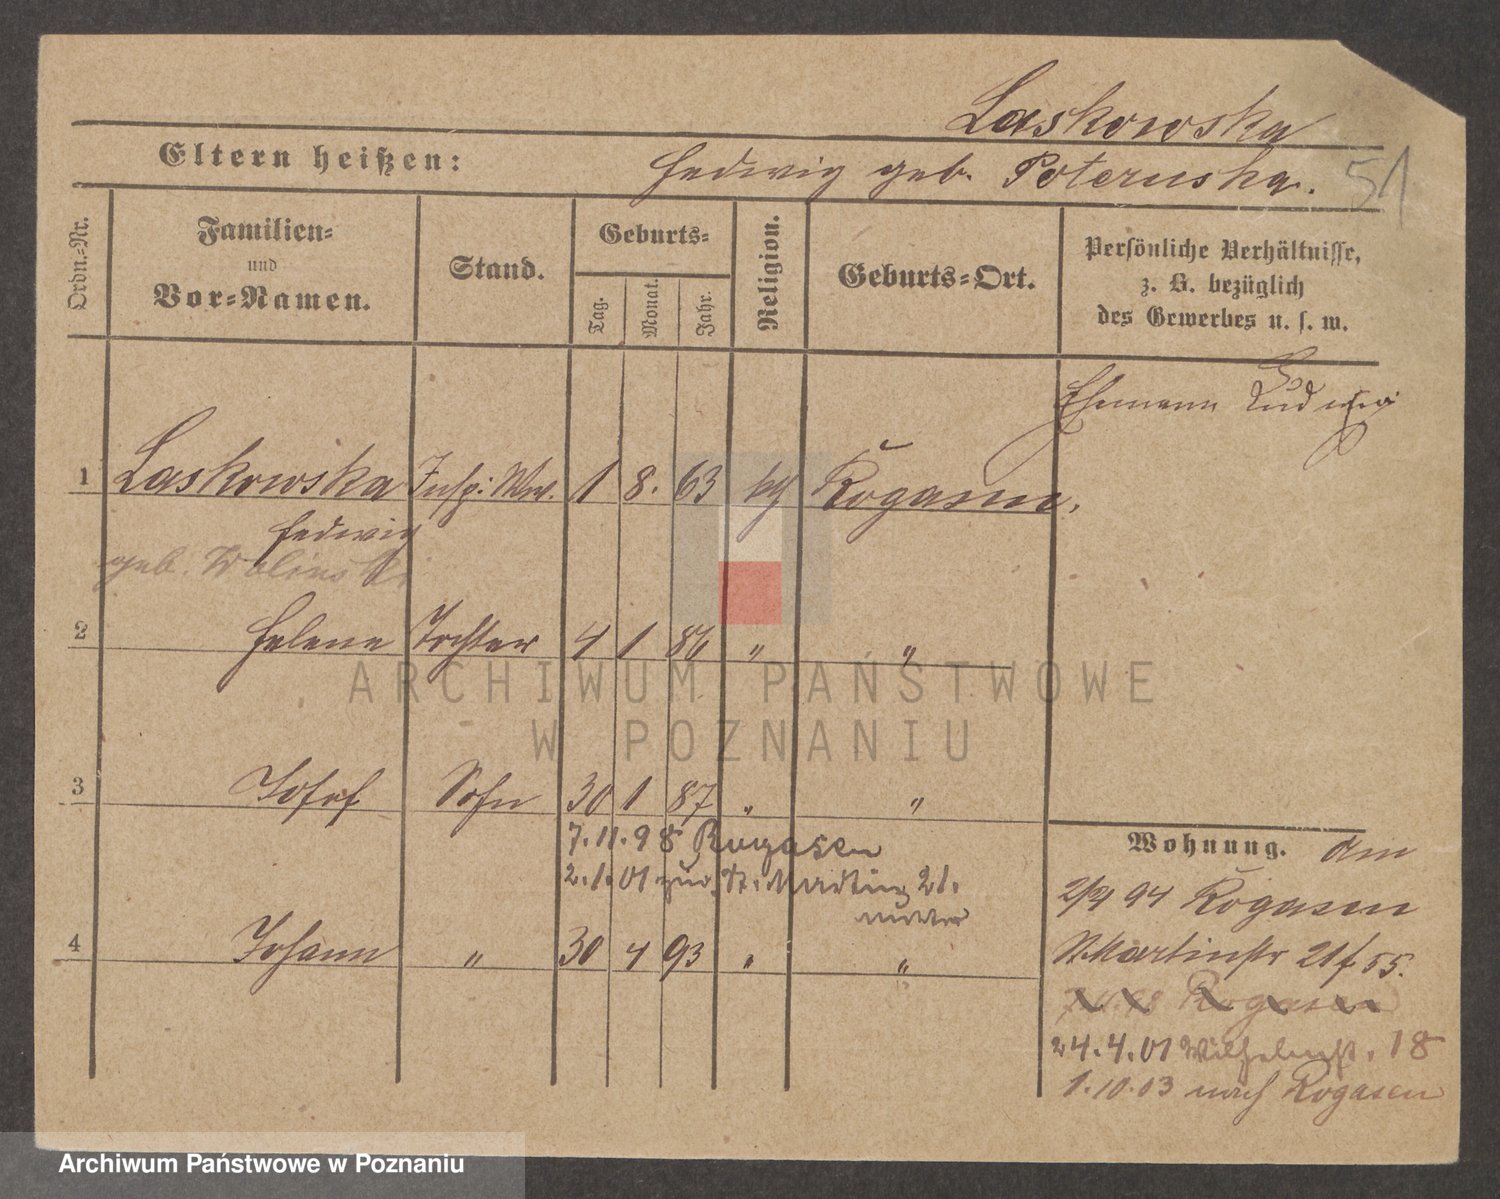 Laskowska
Eltern heißen:
Hedwig geb. Poteruska.
51
Ordn.-Nr.
Familien-
und
Vor-Namen.
Stand.
Geburts-
Tag.
Monat.
Jahr.
Religion.
Geburts-Ort.
Persönliche Verhältnisse,
z. B. bezüglich
des Gewerbes u. s. w.
Ehemann Ludwig
1 Laskowska Insp: Ww. 1 8. 63 kth Rogasen.
Hedwig
geb. Wolinski
2 Helene Tochter 4 1 86 " "
ARCHIWUM PAŃSTWOWE
W POZNANIU
3 Josef Sohn 30 1 87 " "
7.11.98 Rogasen
2.1.01 zur. St. Martin 21.
Mutter
4 Johann " 30 4 93 " "
Wohnung. Am
2/4 94 Rogasen
St Martinstr 21 f 55.
7.11.98 Rogasen
24.4.01 Wilhelmpl. 18
1.10.03 nach Rogasen
Archiwum Państwowe w Poznaniu